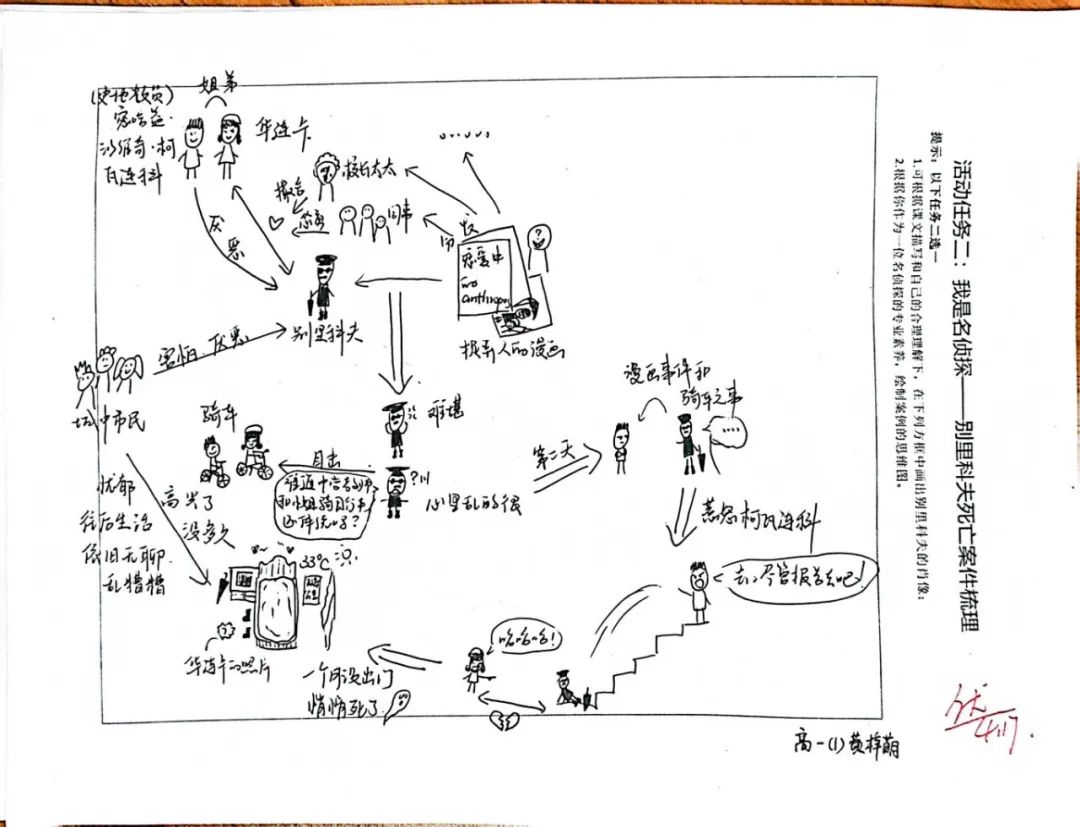 活动任务二：我是名侦探——别里科夫死亡案件梳理
提示：以下任务二选一
1.可根据课文描写和自己的合理理解下，在下列方框中画出别里科夫的肖像；
2.根据你作为一位名侦探的专业素养，绘制案例的思维图。
姐弟
(史地教员)
沙维奇·柯
瓦连科
华连卡
厌恶
校长太太
撮合
同事
......
恋爱中
anthropos
?
捉弄人的漫画
别里科夫
害怕、厌恶
城中市民
难堪
骑车
目击
难道中学教师
和小姐骑自行车
还体统吗？
?
心里乱的很
第二天
漫画事件和
骑车之事
....
惹怒柯瓦连科
去，尽管报告去吧！
哈哈哈！
一个月没出门
悄悄死了
33℃
华连卡的照片
忧郁
往后生活
依旧无聊
乱糟糟
高兴了
没多久
高一(1) 黄梓萌
优
4.17.